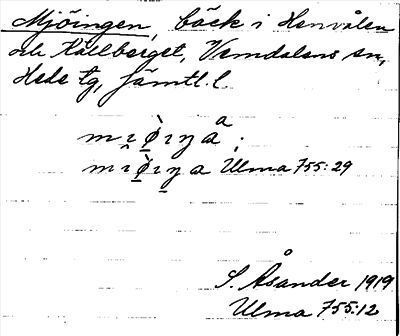 Mjöingen, bäck i Henvålen
och Källberget, Vemdalens sn,
Hede tg, Jämtl. l.
a
mı̯ø̀ıŋa ;
mı̯ø̀ıŋa Ulma 755:29
S. Åsander 1919
Ulma 755:12